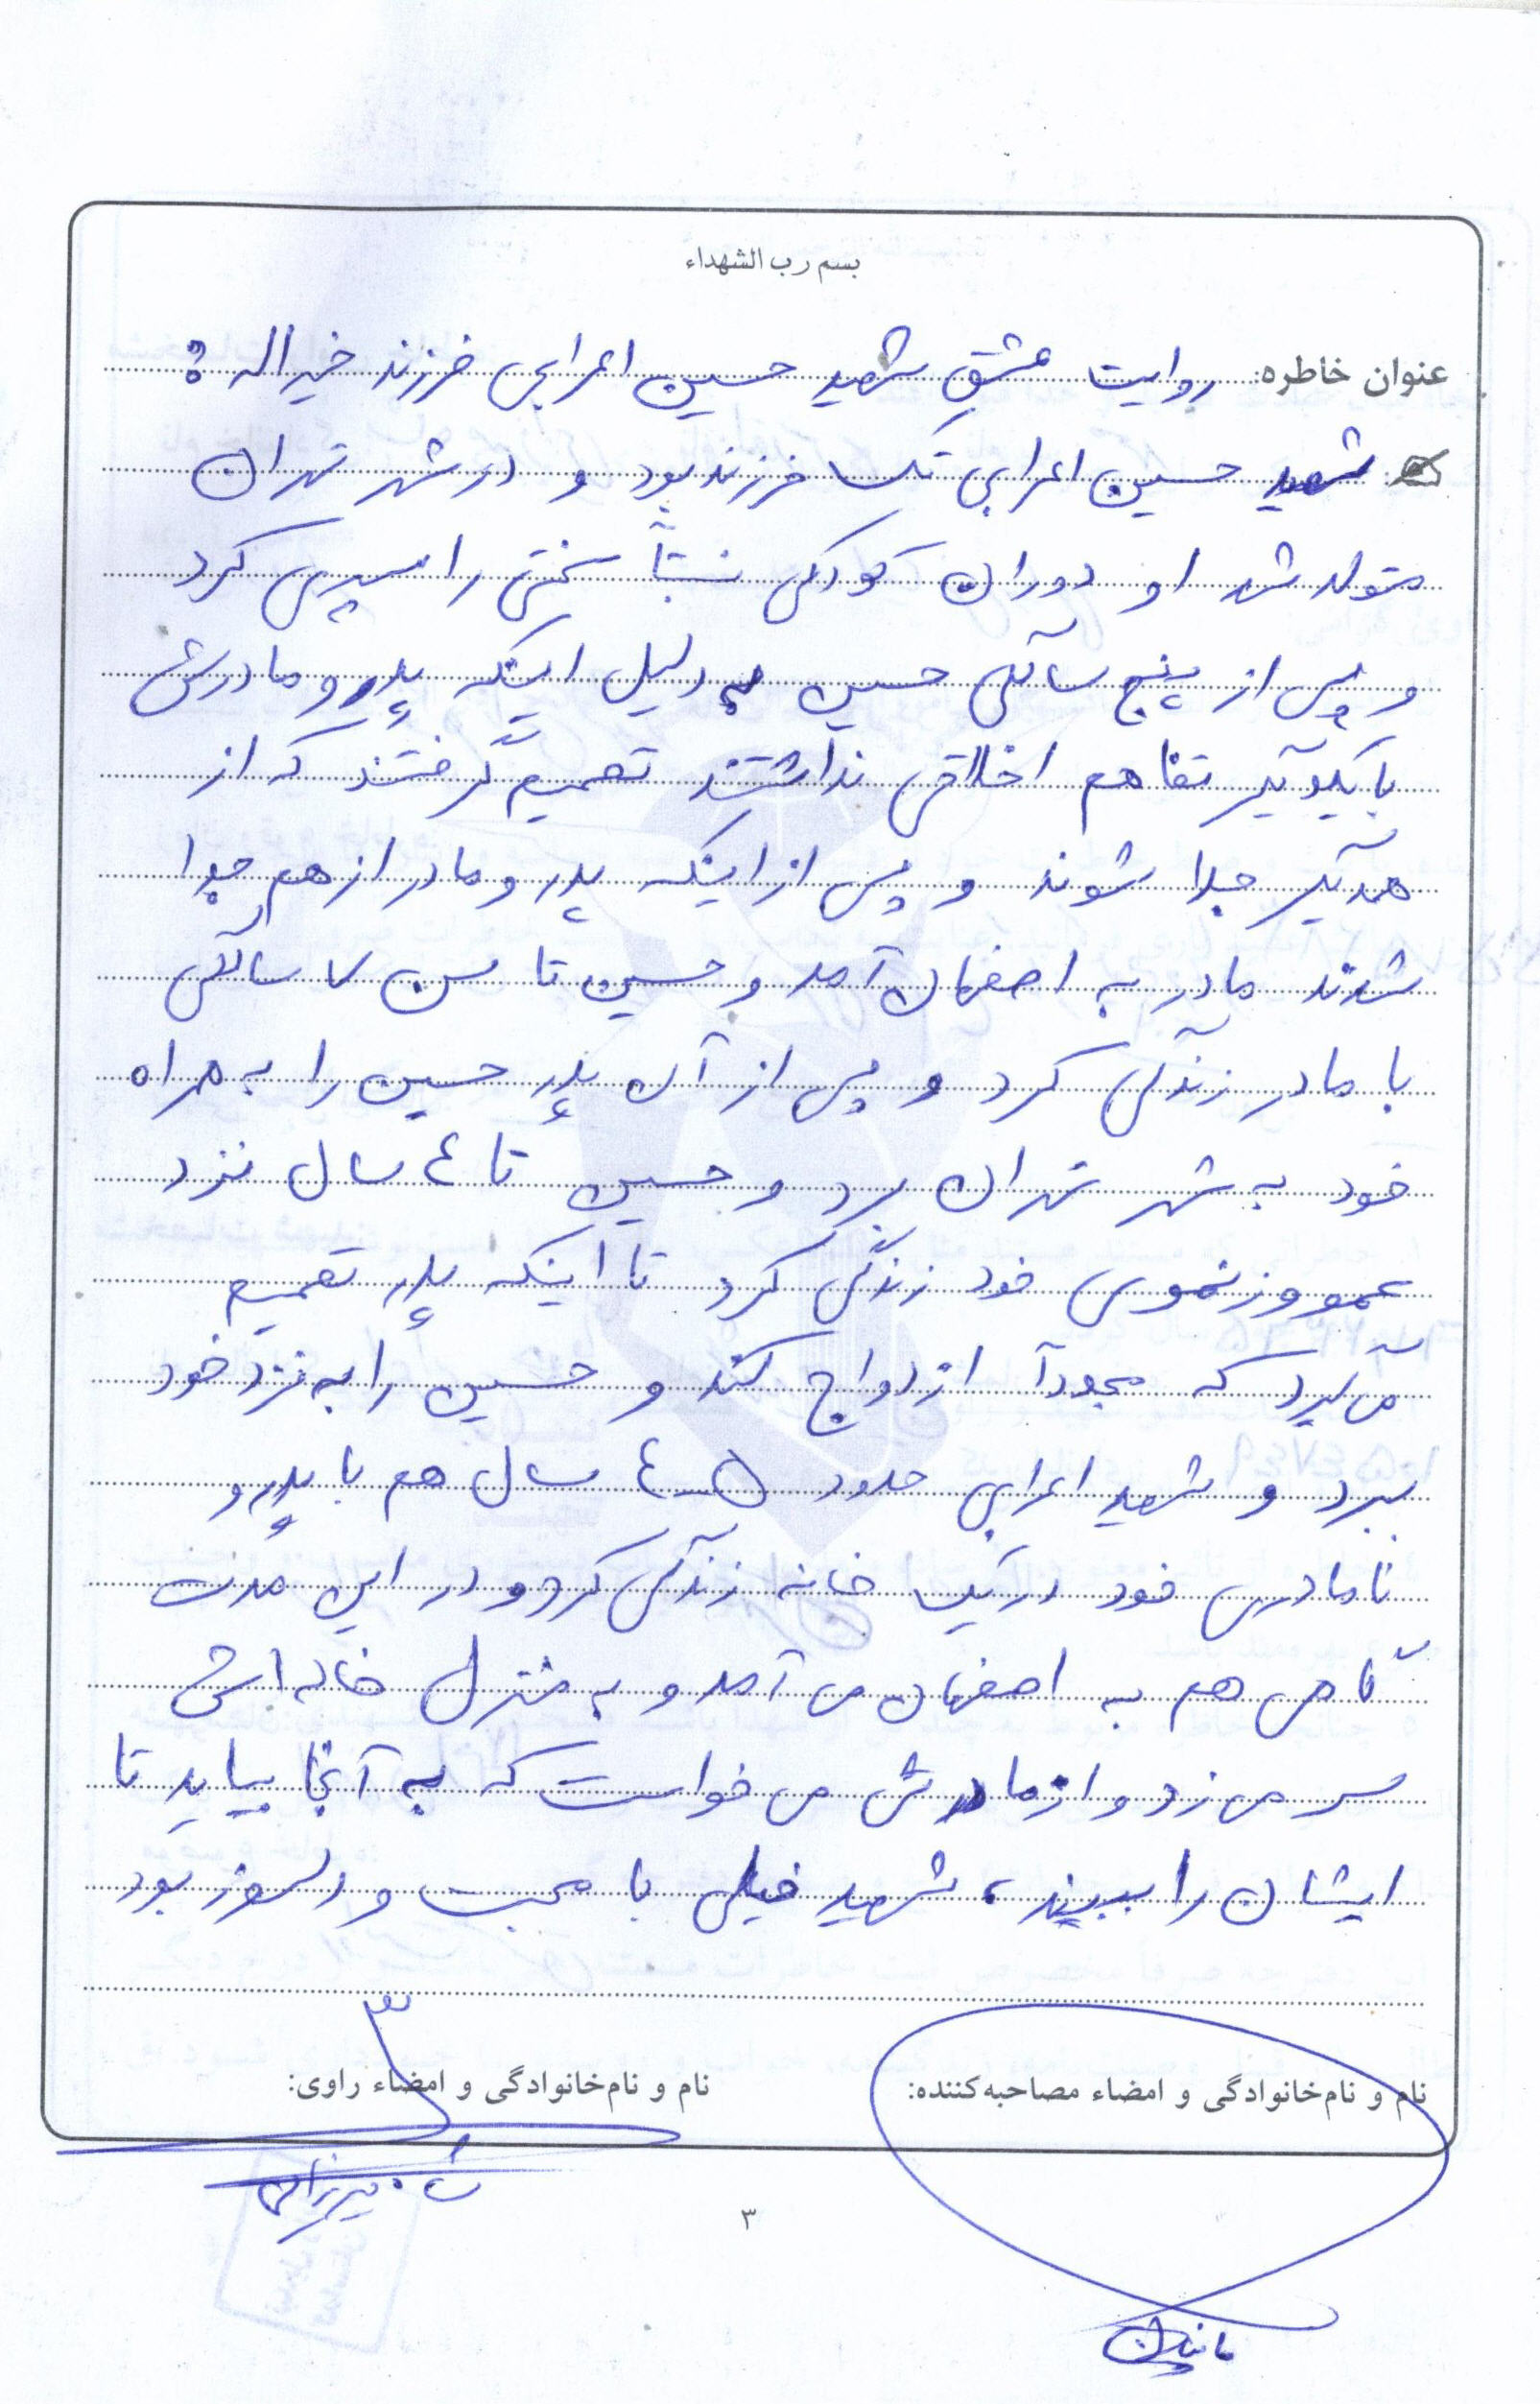 بسم رب الشهداء
عنوان خاطره: روایت عشقِ شهید حسین اعرابی فرزند خیراله :
شهید حسین اعرابی تک فرزند بود و در شهر تهران
متولد شد او دوران کودکی نسبتاً سختی را سپری کرد
و پس از پنج سالگی حسین به دلیل اینکه پدر و مادرش
با یکدیگر تفاهم اخلاقی نداشتند تصمیم گرفتند که از
همدیگر جدا شوند و پس از اینکه پدر و مادر از هم جدا
شدند مادر به اصفهان آمد و حسین تا سن ۷ سالگی
با مادر زندگی کرد و پس از آن پدر حسین را به همراه
خود به شهر تهران برد و حسین تا ٤ سال نزد
عمو و زنعموی خود زندگی کرد تا اینکه پدر تصمیم
می‌گیرد که مجدداً ازدواج کند و حسین را به نزد خود
ببرد و شهید اعرابی حدود ۵-٤ سال هم با پدر و
نامادری خود در یک خانه زندگی کرد و در این مدت
گاهی هم به اصفهان می آمد و به منزل خاله اش
سر می زد و از مادرش می خواست که به آنجا بیاید تا
ایشان را ببیند، شهید خیلی با محبت و دلسوز بود
نام و نام‌خانوادگی و امضاء مصاحبه‌کننده:
نام و نام‌خانوادگی و امضاء راوی:
۳